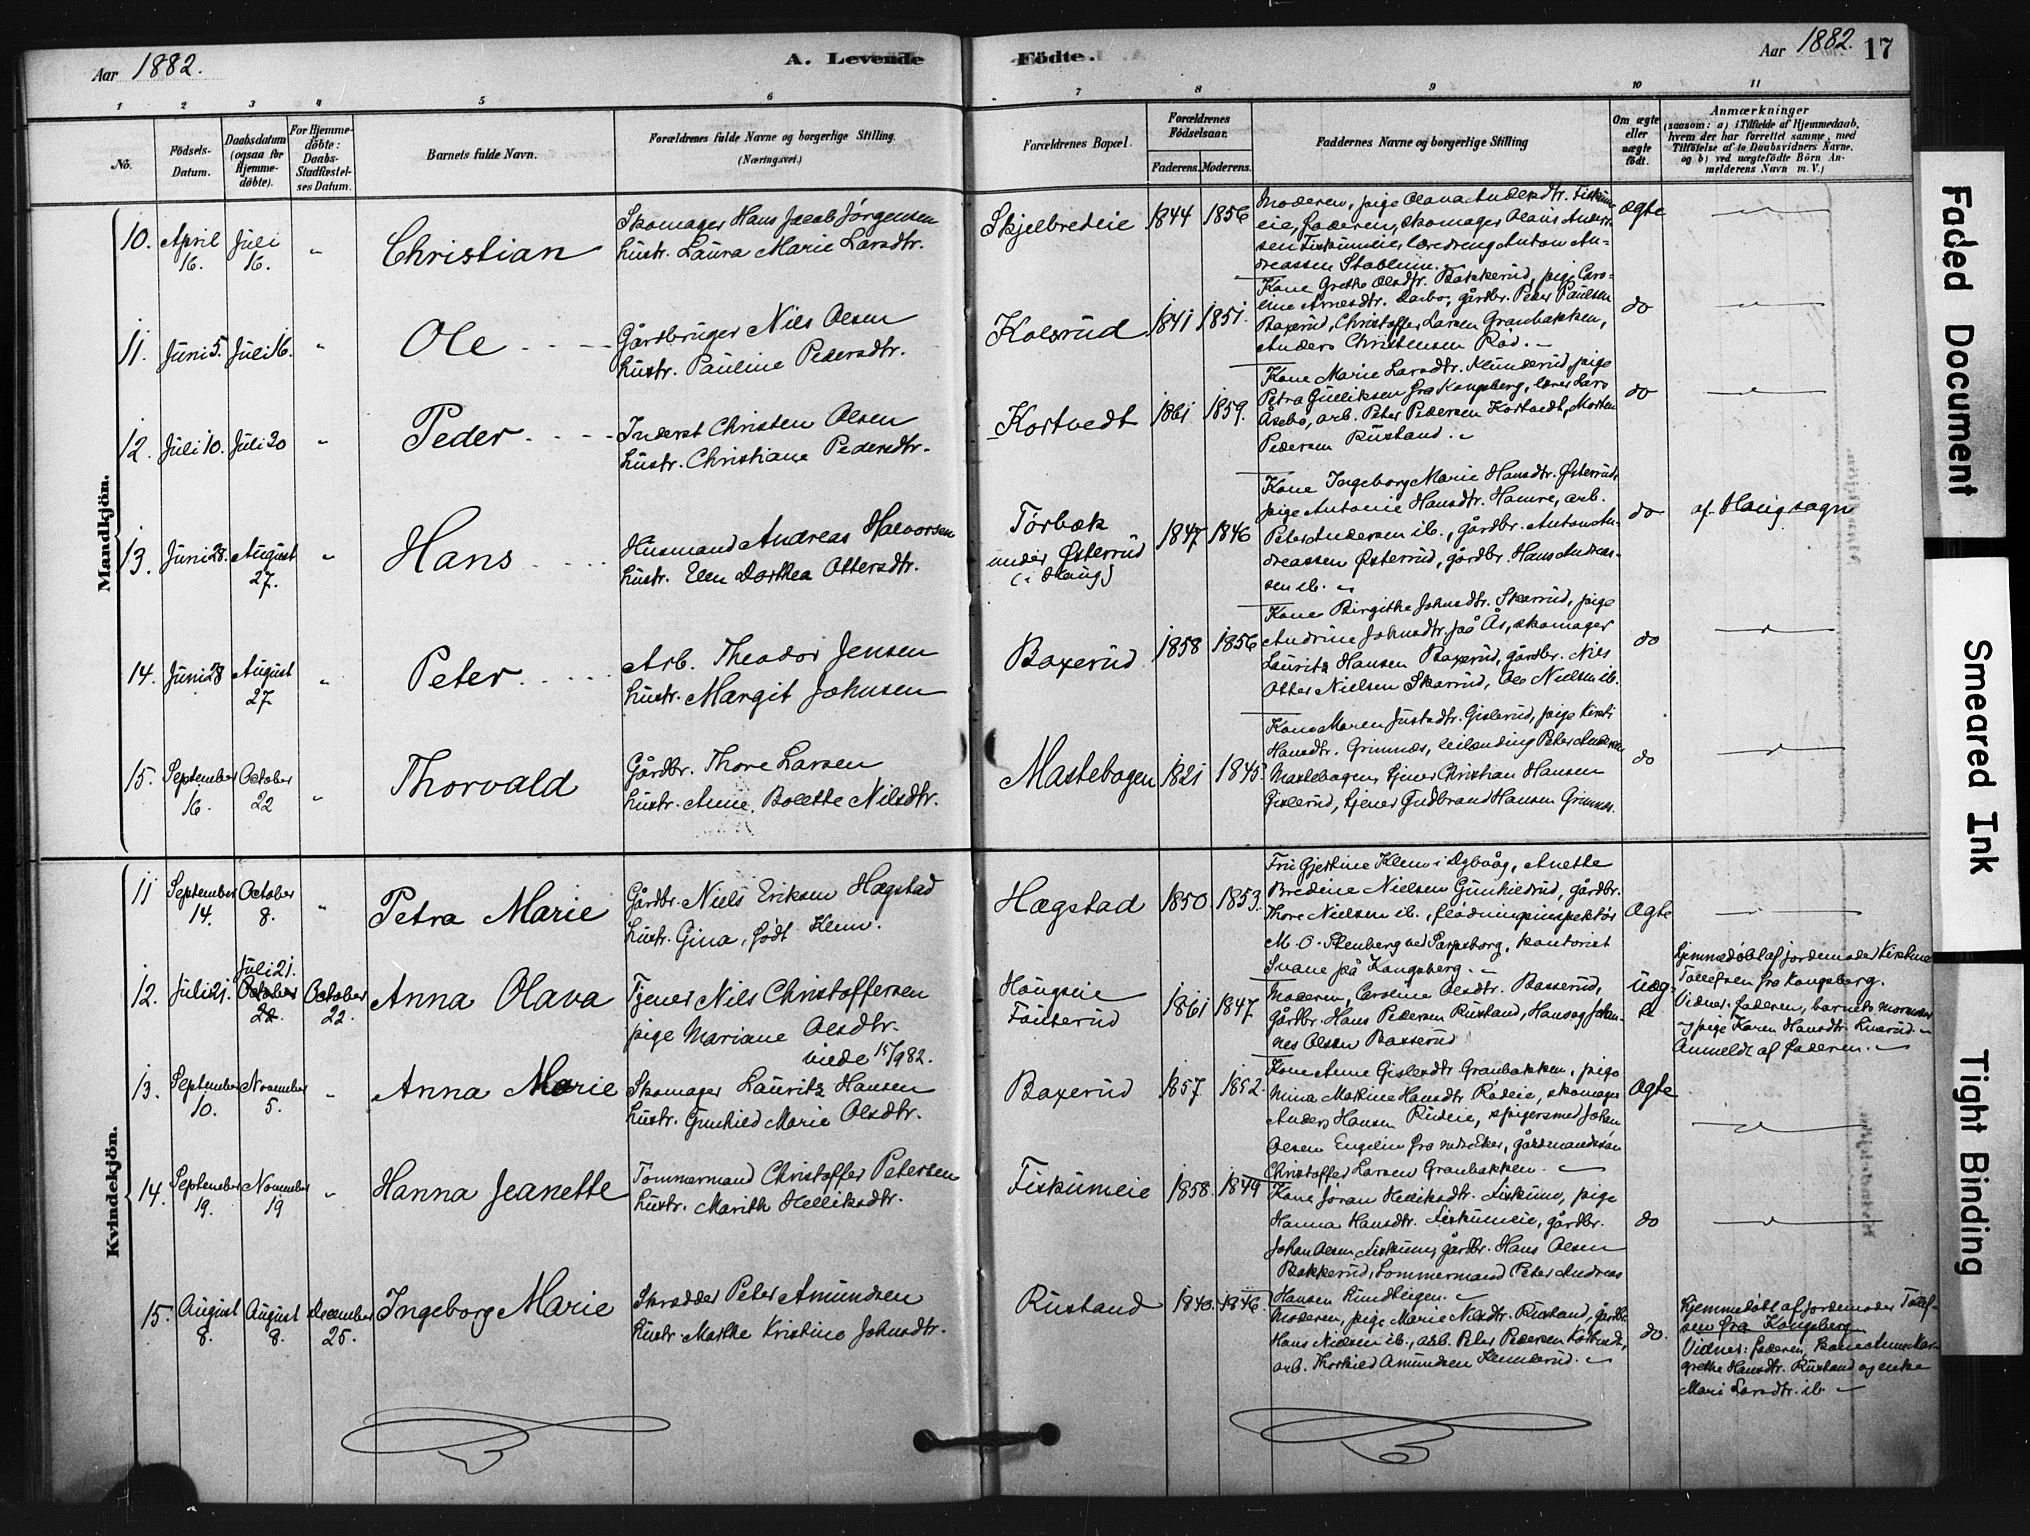 Aar 1882. A. Levende Födte. Aar 1882. 17
1 2 3 4 5 6 7 8 9 10 11
No.
Fødsels-Datum.
Daabsdatum (ogsaa for Hjemme-døbte).
For Hjemme-døbte: Daabs-Stadfæstel-ses Datum.
Barnets fulde Navn.
Forældrenes fulde Navne og borgerlige Stilling. (Næringsvei.)
Forældrenes Bopæl.
Forældrenes Fødselsaar.
Faderens. Moderens.
Faddernes Navne og borgerlige Stilling
Om ægte eller uægte født.
Anmærkninger
(saasom: a) i Tilfælde af Hjemmedaab, hvem der har forrettet samme, med Tilføielse af to Daabsvidners Navne. og b) ved uægtefødte Börn An-melderens Navn m. V.)
Mandkjön.
10. April 16. Juli 16. „ Christian
Skomager Hans Jacob Jörgensen
hustr. Laura Marie Larsdtr.
Skjelbredeie 1844 1856
Moderen, pige Olava Andersdtr. Fiskum-
eie, faderen, skomager Olaus Ander-
sen Fiskumeie, læredreng Anton An-
dreassen Stablum.
ægte
11. Juni 5. Juli 16. „ Ole
Gårdbruger Nils Olsen
hustr. Pauline Pedersdtr.
Kolsrud 1841 1851.
Kone Grethe Olsdtr. Bakkerud, pige Caro-
line Arnesdtr. Darbo, gårdbr. Peter Paulsen
Baxerud, Christoffer Larsen Granbakken,
Anders Christensen Rød.
do
12. Juli 10. Juli 30 „ Peder
Inderst Christen Olsen
hustr. Christiane Pedersdtr.
Kortvedt 1861 1859.
Kone Marie Larsdtr. Klunderud, pige
Petra Gulliksen fra Kongsberg, lærer Lars
Åsebø, arb. Peter Pedersen Kortvedt, Morten
Pedersen Rustand.
do
13. Juni 28. August 27. „ Hans
Husmand Andreas Halvorsen
hustr. Elen Dorthea Ottersdtr.
Törbæk
under Østerud
(i Haug) 1847 1846
Kone Ingeborg Marie Hansdtr. Østerud,
pige Antonie Hansdtr. Hamre, arb.
Peter Andersen ib., gårdbr. Anton An-
dreassen Østerud, gårdbr. Hans Andreas-
sen ib.
do af Haug sogn
14. Juni 28 August 27 „ Peter
Arb. Theodor Jensen
hustr. Margit Johnsen
Baxerud 1858 1856
Kone Birgithe Johnsdtr. Skarrud, pige
Andrine Johnsdtr. på Ås, skomager
Lauritz Hansen Baxerud, gårdbr. Nils
Otter Nielsen Skarrud, Ole Nielsen ib.
do
15. September 16. October 22 „ Thorvald
Gårdbr. Thore Larsen
hustr. Anne Bolette Nilsdtr.
Mastebogen 1821 1845.
Kone Maren Justsdtr. Gislerud, pige Kirsti
Hansdtr. Grimnæs, leilænding Peter Andersen
Mastebogen, tjener Christian Hansen
Gislerud, tjener Gudbrand Hansen Grimnæs.
do
Kvindekjön.
11 September 14. October 8. „ Petra Marie
Gårdbr. Niels Eriksen Hægstad
hustr. Gina, født Klem.
Hægstad 1850. 1853.
Fru Gjertine Klem i Dybvåg, Anette
Bredine Nielsen Gunhildrud, gårdbr.
Thore Nielsen ib., flödningsinspektör
M. O. Stenberg ved Sarpsborg, kontorist
Svane på Kongsberg.
ægte
12. Juli 21. Juli 21. October 22. October 22. Anna Olava
Tjener Nils Christoffersen
pige Mariane Olsdtr.
viede 15/9 82.
Haugseie
Fäuterud 1861 1847
Moderen, Caroline Olsdtr. Basserud,
gårdbr. Hans Pedersen Rustand, Hans og Johan-
nes Olsen Basserud
uæg-
te
Hjemmedöbt af jordemoder Kirstine
Tollefsen fra Kongsberg.
Vidner: faderen, barnets mormoder
og pige Karen Hansdtr.
Anmeldt af faderen.
13. September 10. November 5. „ Anna Marie
Skomager Lauritz Hansen
hustr. Gunhild Marie Olsdtr.
Baxerud 1857. 1852.
Kone Anne Gislesdtr. Granbakken, pige
Mina Matine Hansdtr. Rødeie, skomager
Anders Hansen Rudeie, spigersmed Johan
Olsen Engelin fra nedreEker, gårdmandssön
Christoffer Larsen Granbakken.
ægte
14. September 19. November 19 „ Hanna Jeanette
Tömmermand Christoffer Petersen
hustr. Marith Helliksdtr.
Fiskumeie 1858. 1849
Kone Jöran Helliksdtr. Fiskum, pige
Hanna Hansdtr. Fiskumeie, gårdbr.
Johan Olsen Fiskum, gårdbr. Hans Olsen
Bakkerud, tømmermand Peter Andreas
Hansen
do
15. August 8. August 8. December 25. Ingeborg Marie
Skrædder Peter Amundsen
hustr Marthe Kristine Johnsdtr.
Rustand 1840. 1846.
Moderen, pige Marie Nilsdtr. Rustand, gårdbr.
Hans Nielsen ib., arb. Peter Pedersen Kortvedt,
arb. Thorkild Amundsen Klunderud.
do.
Hjemmedöbt af jordemoder Tollef-
sen fra Kongsberg
Vidner: faderen, kone Anne Mar-
grethe Hansdtr. Rustand og enke
Mari Larsdtr. ib.
Faded Document
Smeared Ink
Tight Binding